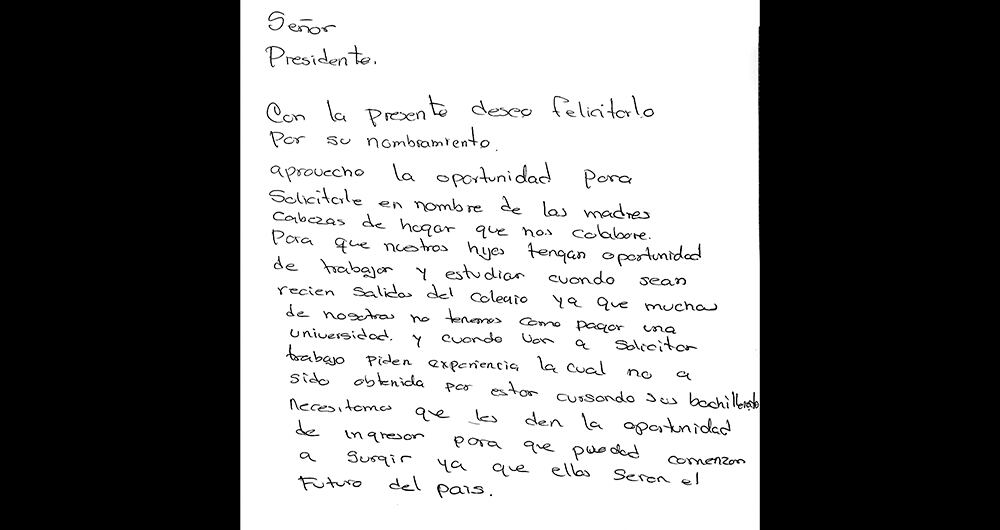 Señor
Presidente.
Con la presente deseo felicitarlo
Por su nombramiento.
aprovecho la oportunidad para
Solicitarle en nombre de las madres
Cabezas de hogar que nos colabore.
Para que nuestros hijos tengan oportunidad
de trabajar y estudiar cuando sean
recien salidos del colegio ya que muchas
de nosotras no tenemos como pagar una
universidad. y cuando van a solicitar
trabajo piden experiencia la cual no a
sido obtenida por estar cursando sus bachillerato
Necesitamos que les den la oportunidad
de ingresar para que puedad comenzar
a surgir ya que ellos seran el
Futuro del pais.